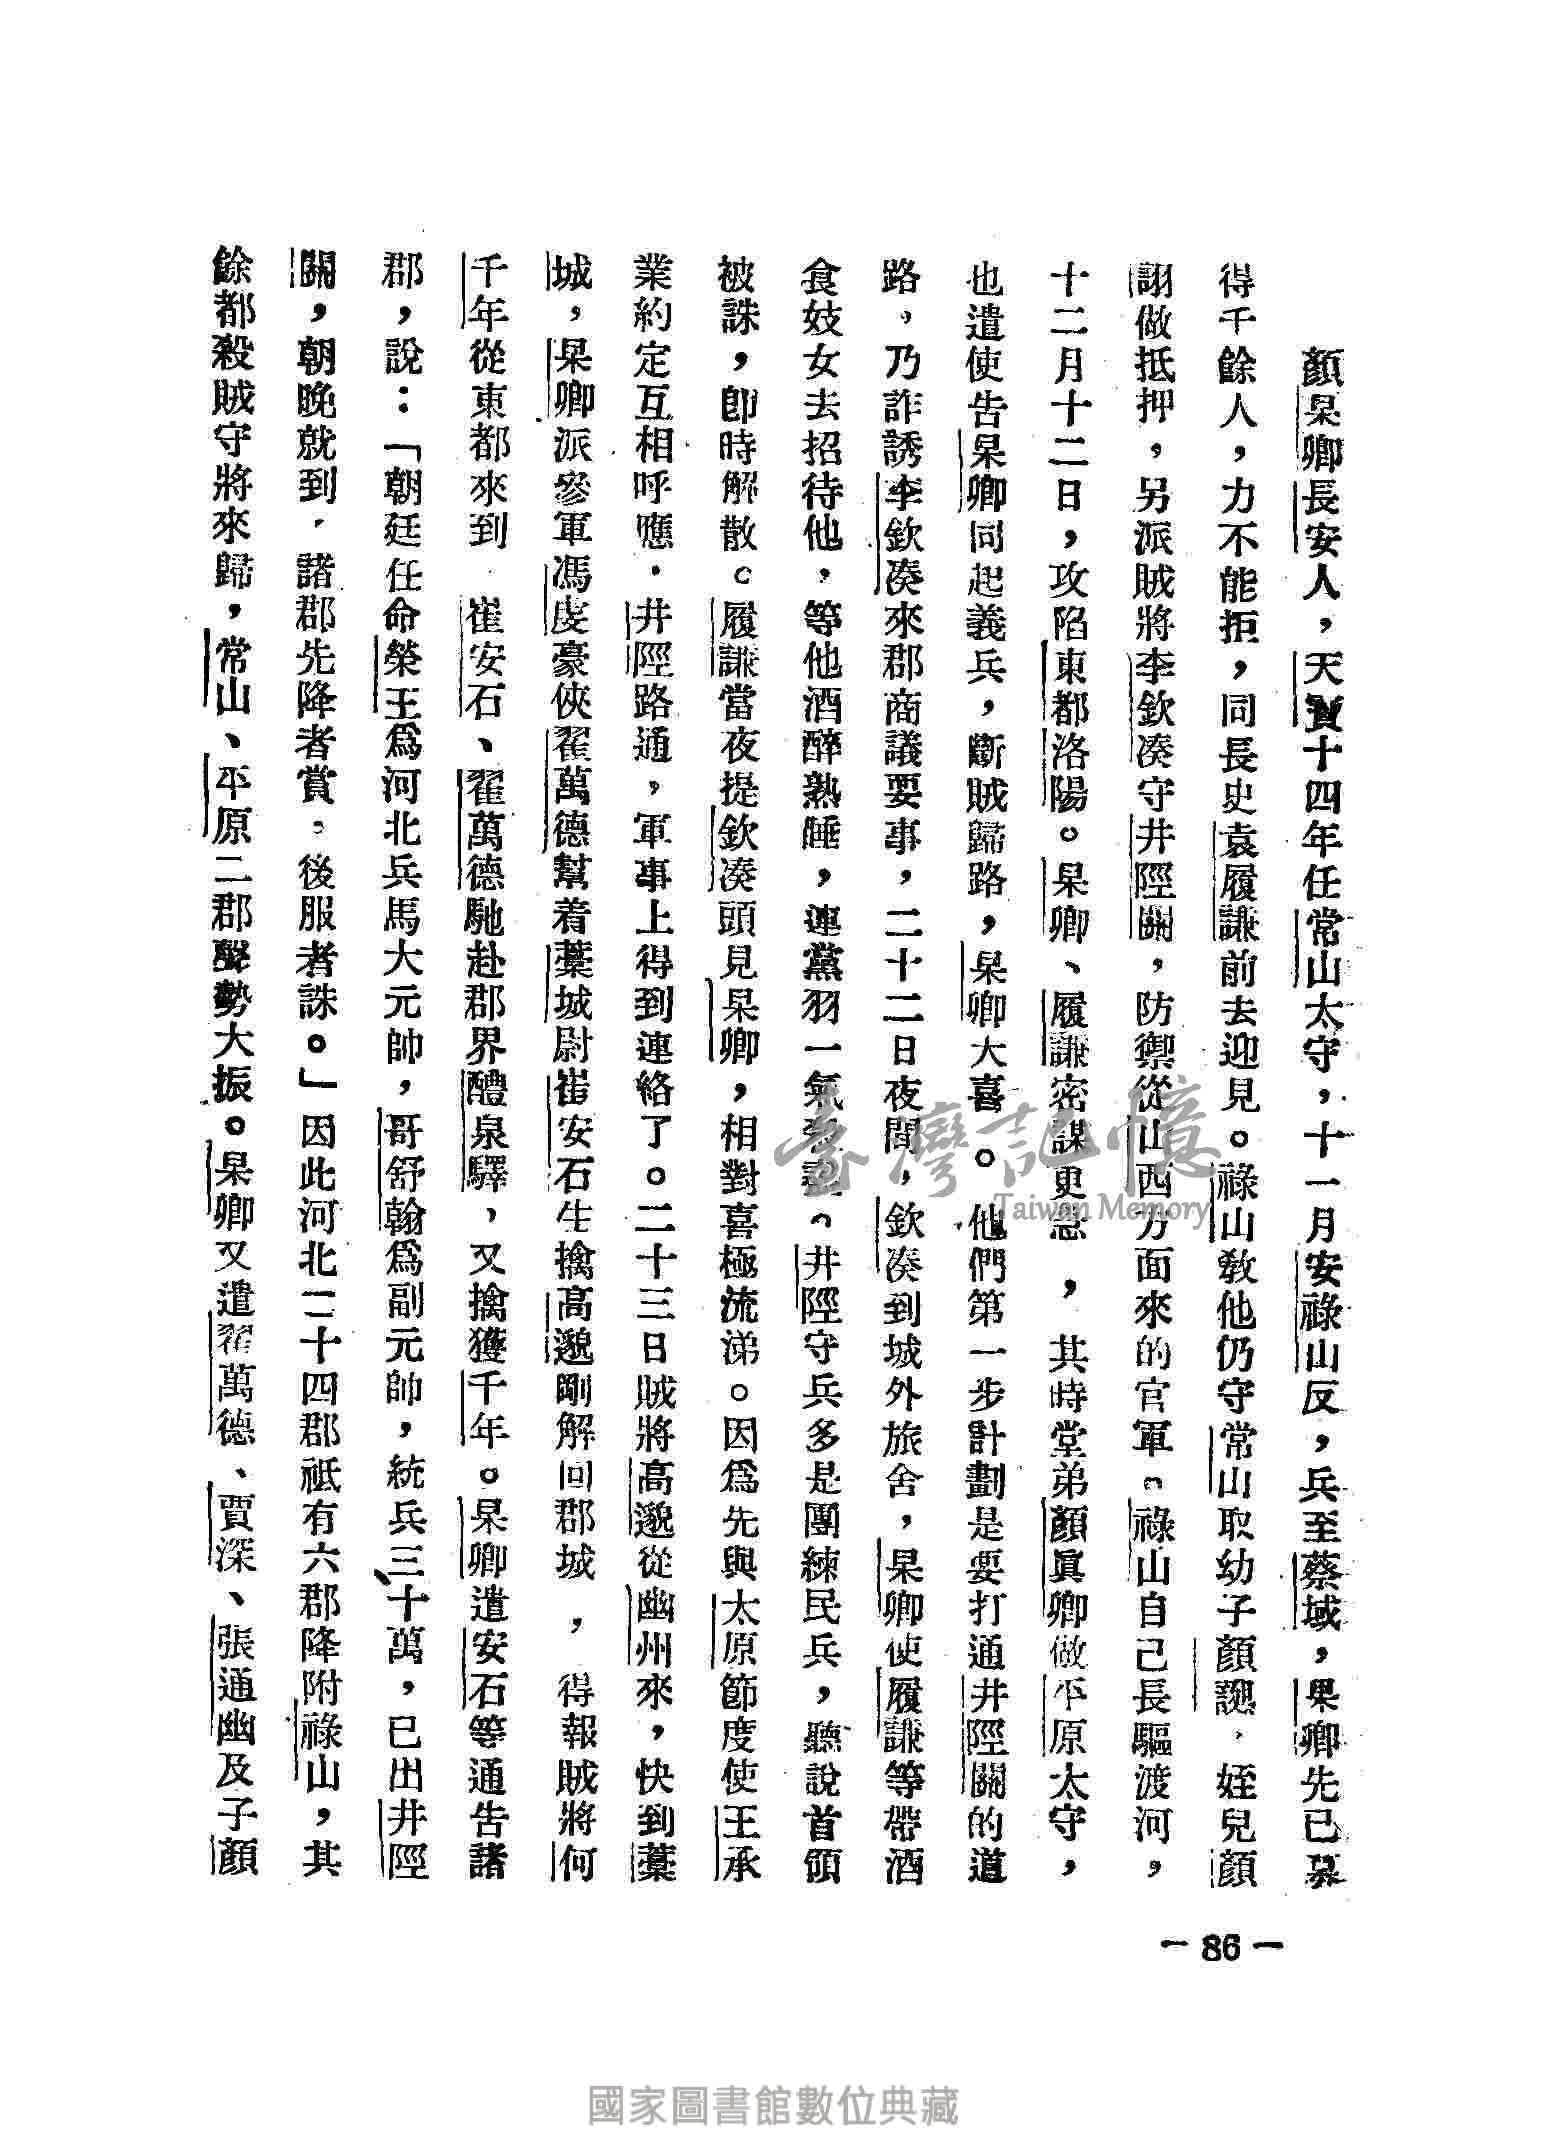 顏杲卿長安人，天寶十四年任常山太守，十一月安祿山反，兵至蔡域，杲卿先已募
得千餘人，力不能拒，同長史袁履謙前去迎見。祿山敎他仍守常山取幼子顏諰，姪兒顏
詡做抵押，另派賊將李欽凑守井陘關，防禦從山西方面來的官軍。祿山自己長驅渡河，
十二月十二日，攻陷東都洛陽。杲卿、履謙密謀更急，其時堂弟顏眞卿做平原太守，
也遣使告杲卿同起義兵，斷賊歸路，杲卿大喜。他們第一步計劃是要打通井陘關的道
路，乃詐誘李欽凑來郡商議要事，二十二日夜間，欽凑到城外旅舍，杲卿使履謙等帶酒
食妓女去招待他，等他酒醉熟睡，連黨羽一氣殺盡。井陘守兵多是團練民兵，聽說首領
被誅，卽時解散。履謙當夜提欽凑頭見杲卿，相對喜極流涕。因爲先與太原節度使王承
業約定互相呼應，井陘路通，軍事上得到連絡了。二十三日賊將高邈從幽州來，快到藁
城，杲卿派參軍馮虔豪俠翟萬德幫着藁城尉崔安石生擒高邈剛解回郡城，得報賊將何
千年從東都來到，崔安石、翟萬德馳赴郡界醴泉驛，又擒獲千年。杲卿遣安石等通告諸
郡，說：「朝廷任命榮王爲河北兵馬大元帥，哥舒翰爲副元帥，統兵三十萬，已出井陘
關，朝晚就到，諸郡先降者賞，後服者誅。」因此河北二十四郡祇有六郡降附祿山，其
餘都殺賊守將來歸，常山、平原二郡聲勢大振。杲卿又遣翟萬德、賈深、張通幽及子顏
－86－
臺灣記憶
Taiwan Memory
國家圖書館數位典藏